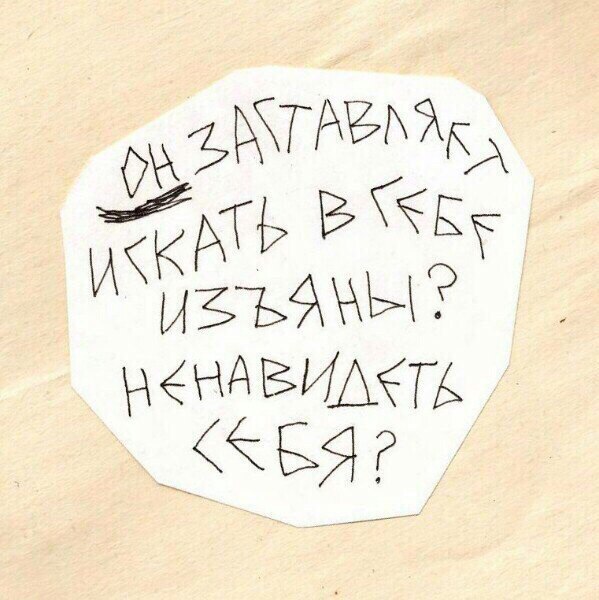 ОН ЗАСТАВЛЯЕТ
ИСКАТЬ В СЕБЕ
ИЗЪЯНЫ?
НЕНАВИДЕТЬ
СЕБЯ?